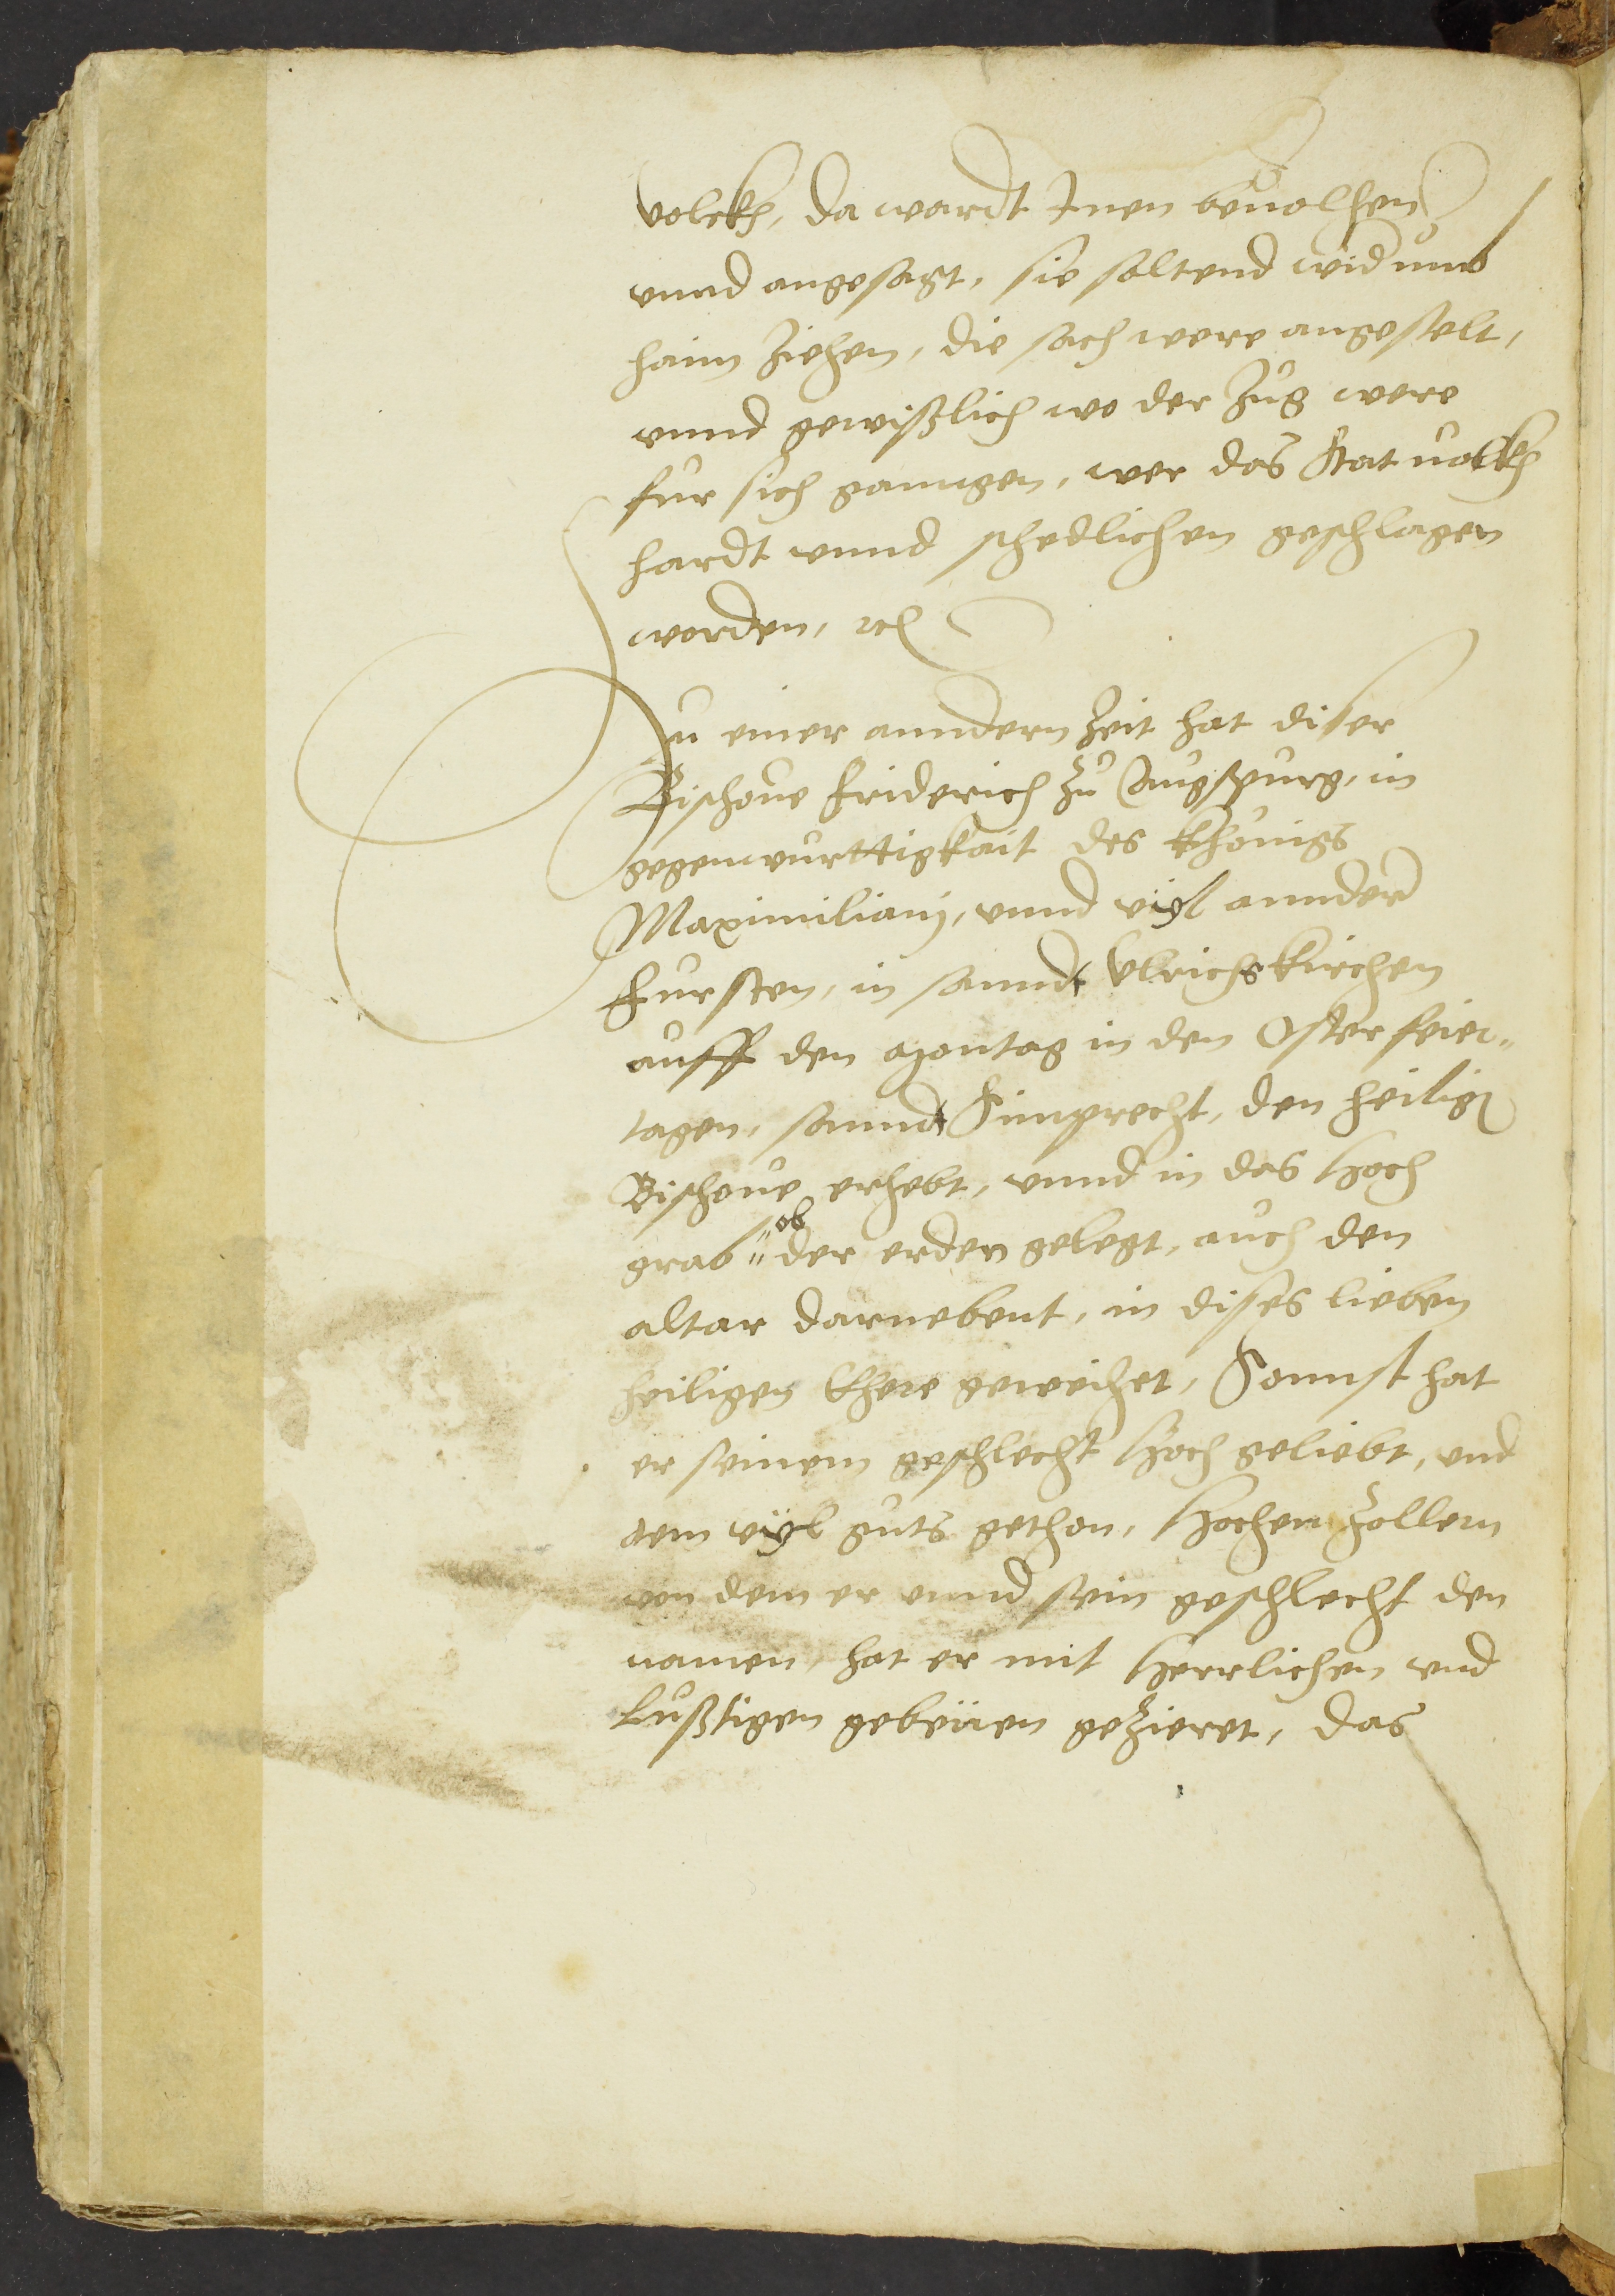 volckh, da wardt Inen beuolhen
vnnd angesagt, sie soltend widumb
haim ziehen, die sach were angestelt,
vnnd gewißlich wo der zug were
fur sich ganngen, wer das Stat uolckh
hardt vnnd schedlichen geschlagen
worden, etc
Zu einer anndern zeit hat diser
Bischoue Friderich zu Augspurg, in
gegenwurttigkait des Khönigs
Maximiliani, vnnd vyl annder
Fursten, in sannd Vlrichs kirchen
auff den Montag in den Osterfeier„
tagen, sannd Simprecht, den heiligen
Bischoue erhebt, vnnd in das hoch
grab ob der erden gelegt, auch den
altar darnebent, in dises lieben
heiligen Ehere geweihet, Sonnst hat
er seinem geschlecht hoch geliebt, vnd
dem vyl guts gethon, Hochen Zollern
von dem er vnnd sein geschlecht den
namen, hat er mit herrlichen vnd
lußtigen gebeüen gezieret, das